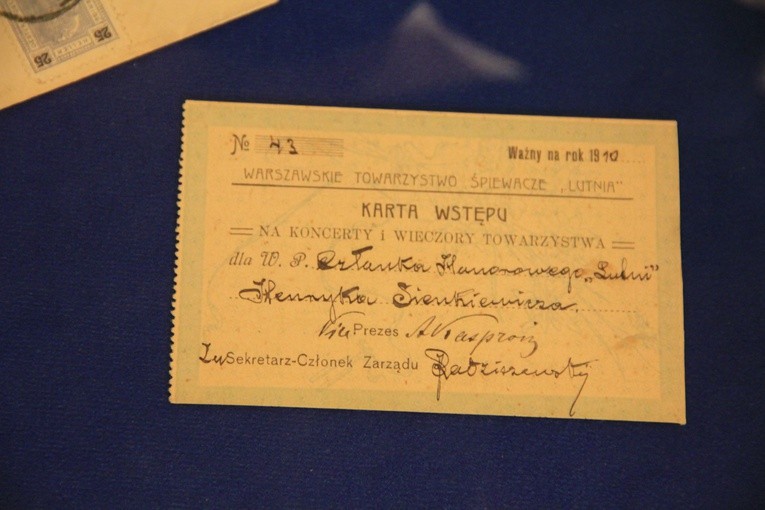 25 25
№ 43 Ważny na rok 1910
WARSZAWSKIE TOWARZYSTWO ŚPIEWACZE „LUTNIA”
KARTA WSTĘPU
NA KONCERTY I WIECZORY TOWARZYSTWA
dla W. P. Członka Honorowego „Lutni”
Henryka Sienkiewicza
Vice Prezes
Sekretarz-Członek Zarządu Radziszewski